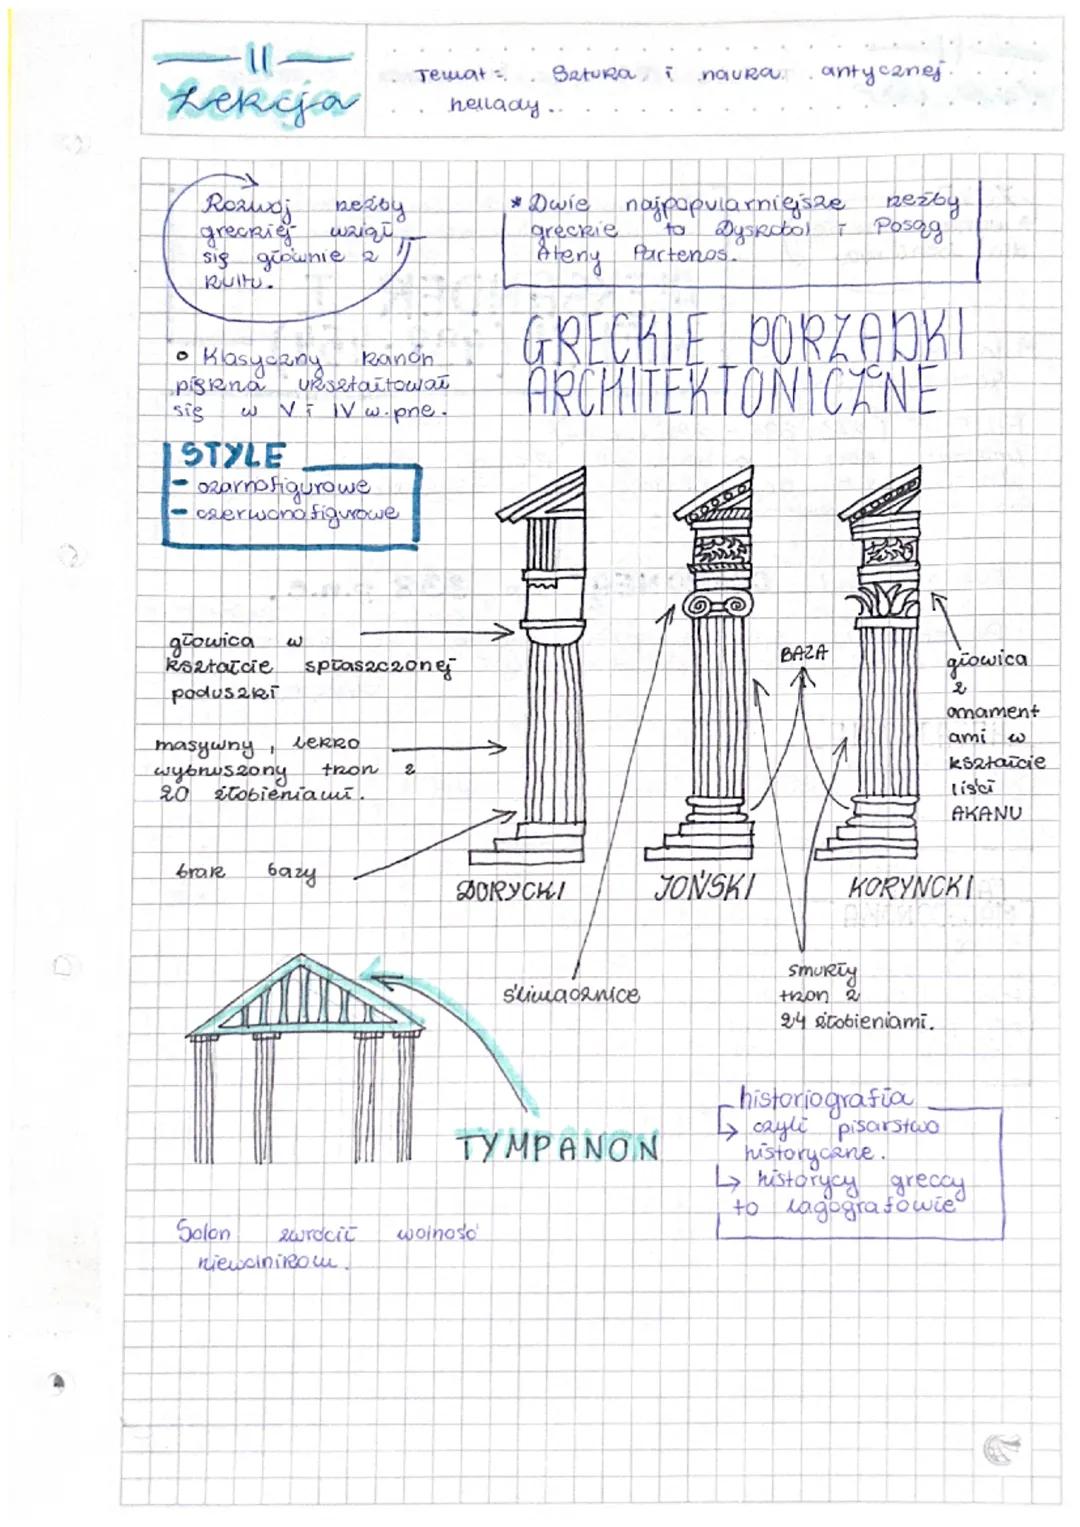 11
Lekcja
Temat: Sztuka i nauka antycznej
hellady.
Rozwój rzeźby
greckiej wziął
się głównie z
kultu.
* Dwie najpopularniejsze rzeźby
greckie to Dyskobol i Posąg
Ateny Partenos.
• Klasyczny kanon
piękna ukształtował
się w V i IV w. pne.
GRECKIE PORZĄDKI
ARCHITEKTONICZNE
STYLE
- czarnofigurowe
- czerwonofigurowe
głowica w
kształcie spłaszczonej
poduszki
masywny, lekko
wybrzuszony trzon z
20 żłobieniami.
brak bazy
BAZA
głowica
z
ornament
ami w
kształcie
liści
AKANU
DORYCKI
JOŃSKI
KORYNCKI
ślimacznice
smukły
trzon z
24 żłobieniami.
TYMPANON
historiografia
↳ czyli pisarstwo
historyczne.
↳ historycy greccy
to lagografowie
Solon zwrócił wolność
niewolnikom.